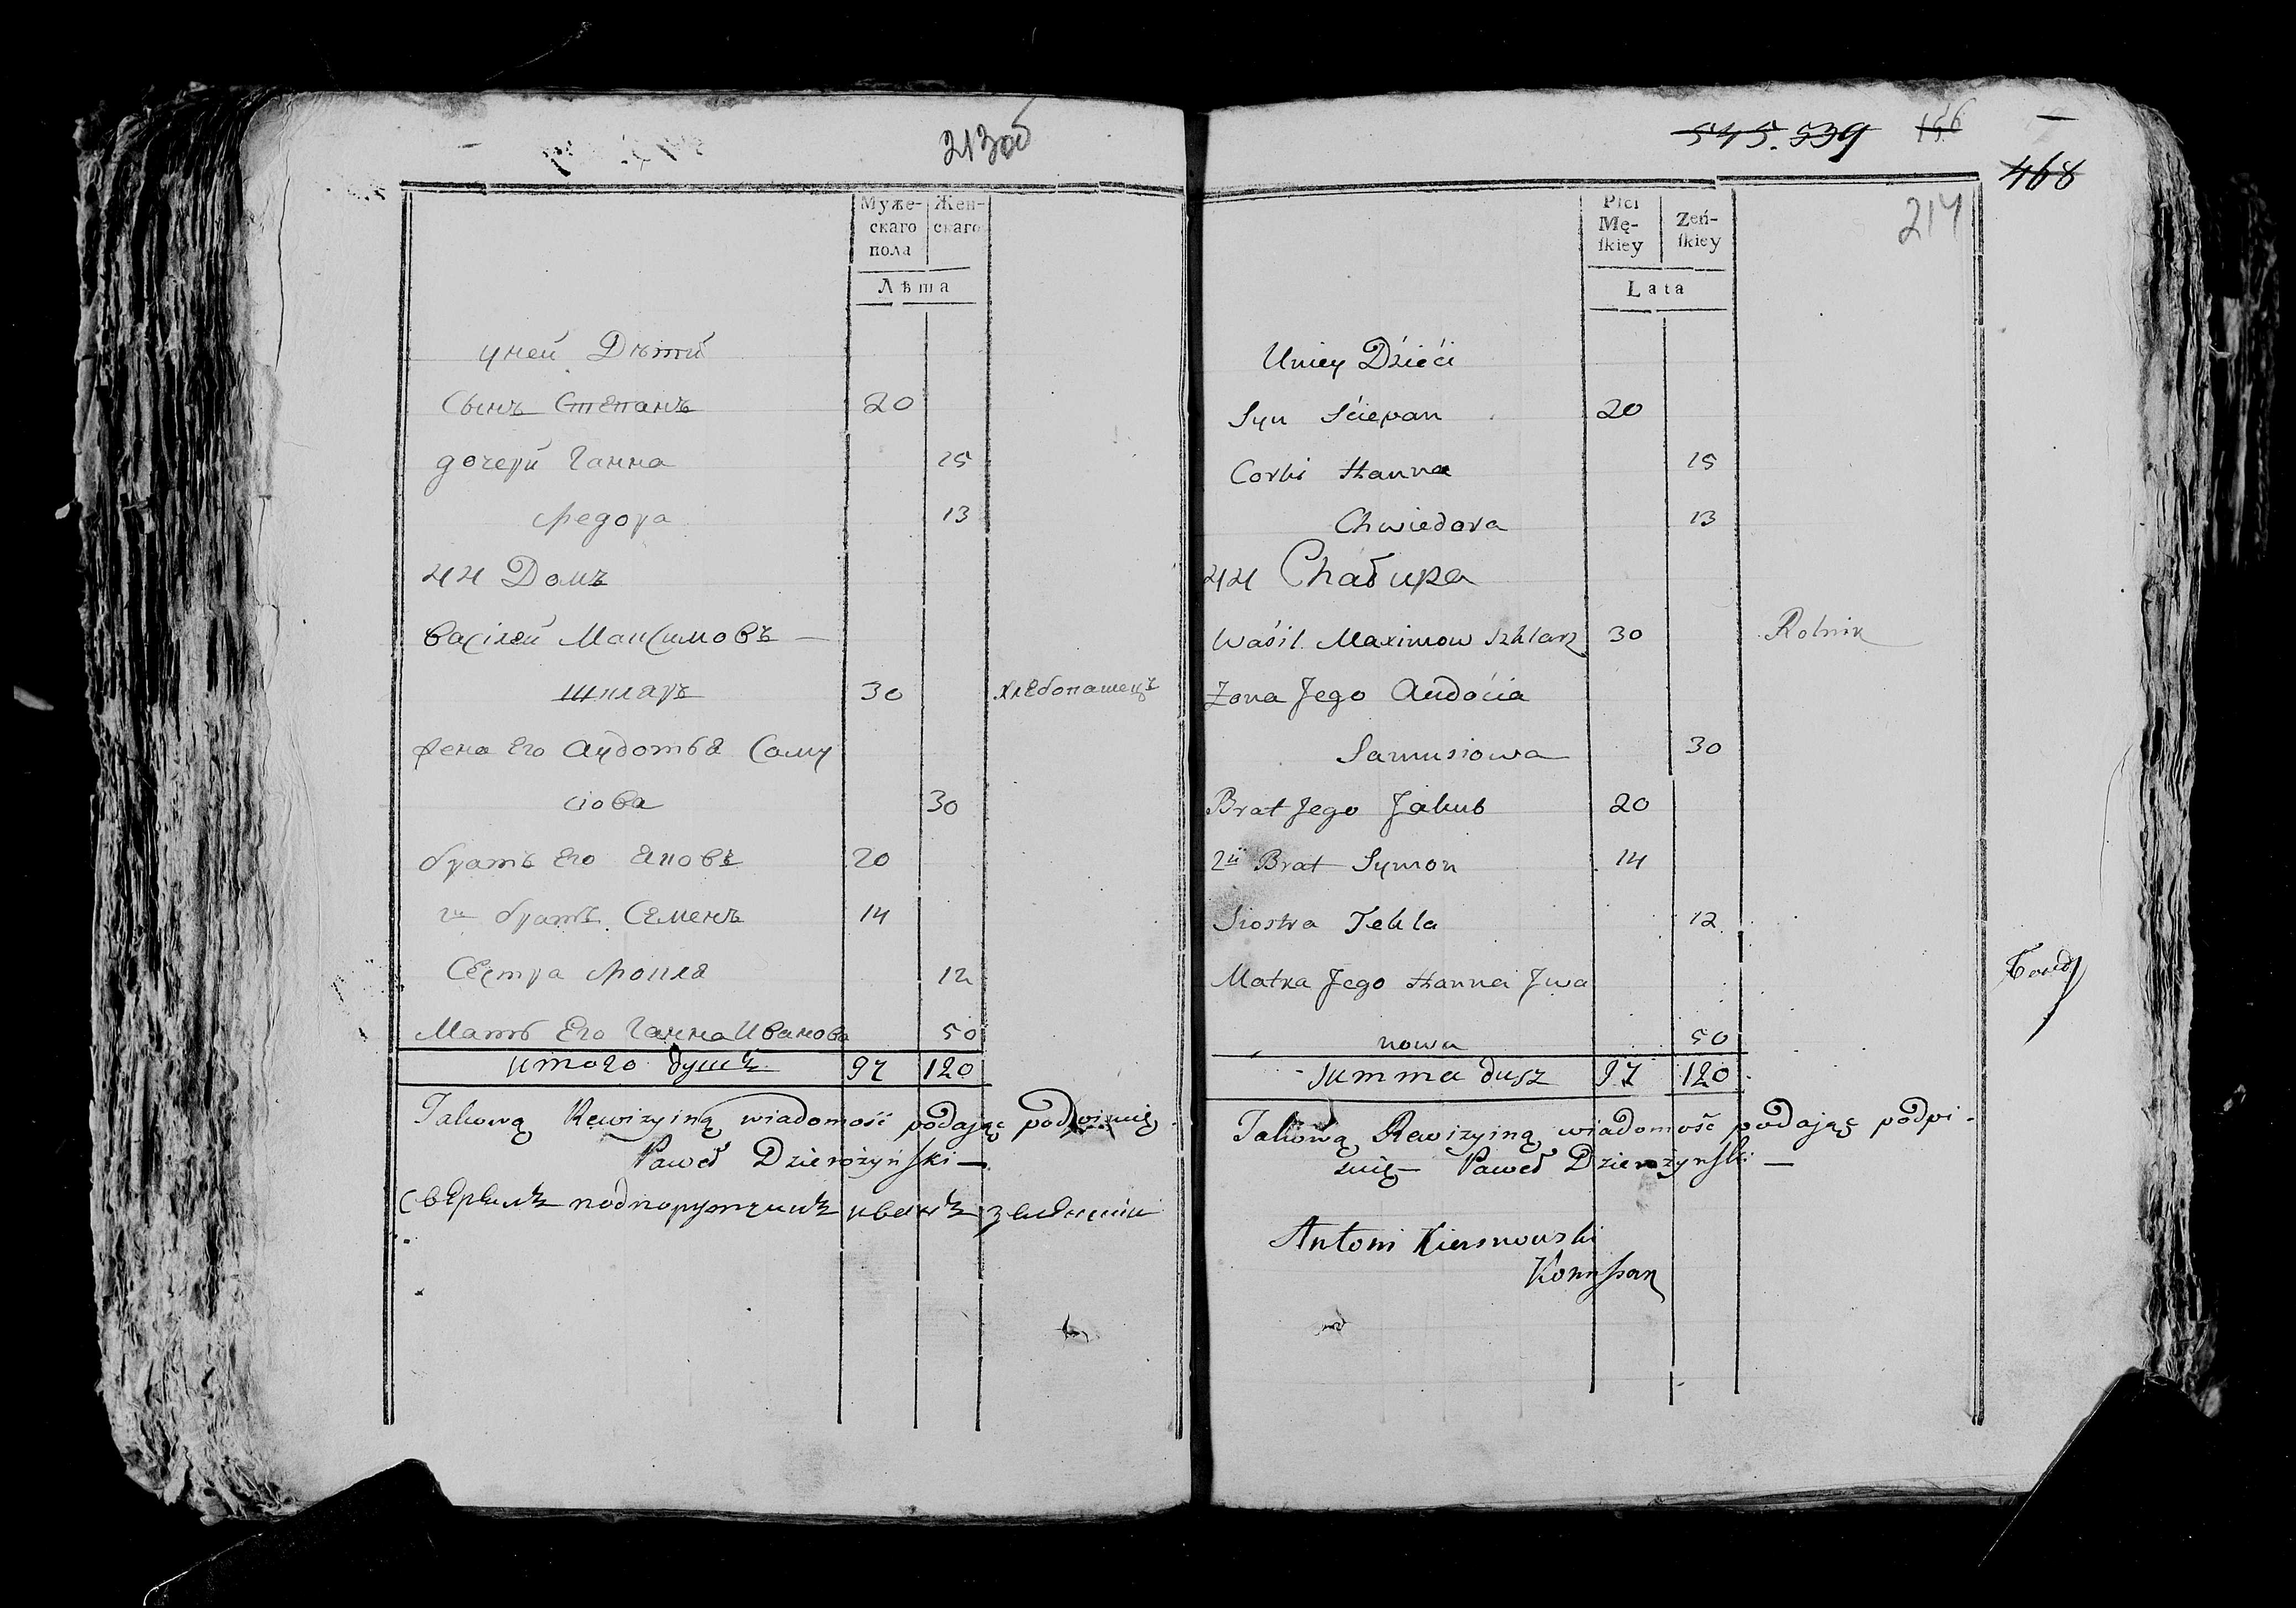 213об
Муже-
скаго
пола
Жен-
скаго
Лѣта
у ней Дѣтй
Сынъ Степанъ 20
дочерй Ганна 15
Федора 13
44 Домъ
Василей Максимовъ —
Шкляръ 30 хлебопашецъ
Жена Его Аудотья Саму
сiова 30
братъ Его Яковъ 20
2й братъ Семенъ 14
Сестра Фокля 12
Мать Его Ганна Иванова 50
итого душъ 97 120
Takową Rewizyiną wiadomość podając podpisuię
Paweł Dzierożyński —
Сверялъ подпорутчикъ иванъ
545. 539 156
468
214
Płci
Mę-
ſkiey
Zeń-
ſkiey
Lata
Uniey Dzieći
Syn Śćiepan 20
Corki Hanna 15
Chwiedora 13
44 Chałupa
Waśil Maximow Szklarz 30 Rolnik
Zona Jego Audoćia
Samusiowa 30
Brat Jego Jakub 20
2ii Brat Symon 14
Siostra Tekla 12
Matka Jego Hanna Jwa
nowa 50
Summa dusz 97 120
Takową Rewizyiną wiadomość podając podpi-
suię — Paweł Dzierożyński —
Antoni Kiersnowski